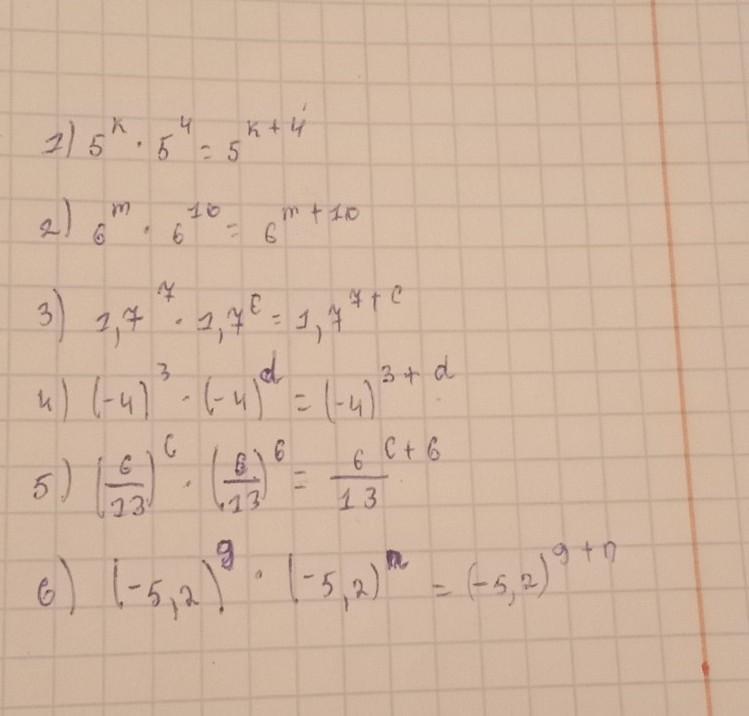 1) 5^k · 5^4 = 5^{k+4}
2) 6^m · 6^{10} = 6^{m+10}
3) 1,7^7 · 1,7^c = 1,7^{7+c}
4) (-4)^3 · (-4)^d = (-4)^{3+d}
5) (6/13)^c · (6/13)^6 = 6^{c+6}/13
6) (-5,2)^g · (-5,2)^n = (-5,2)^{g+n}